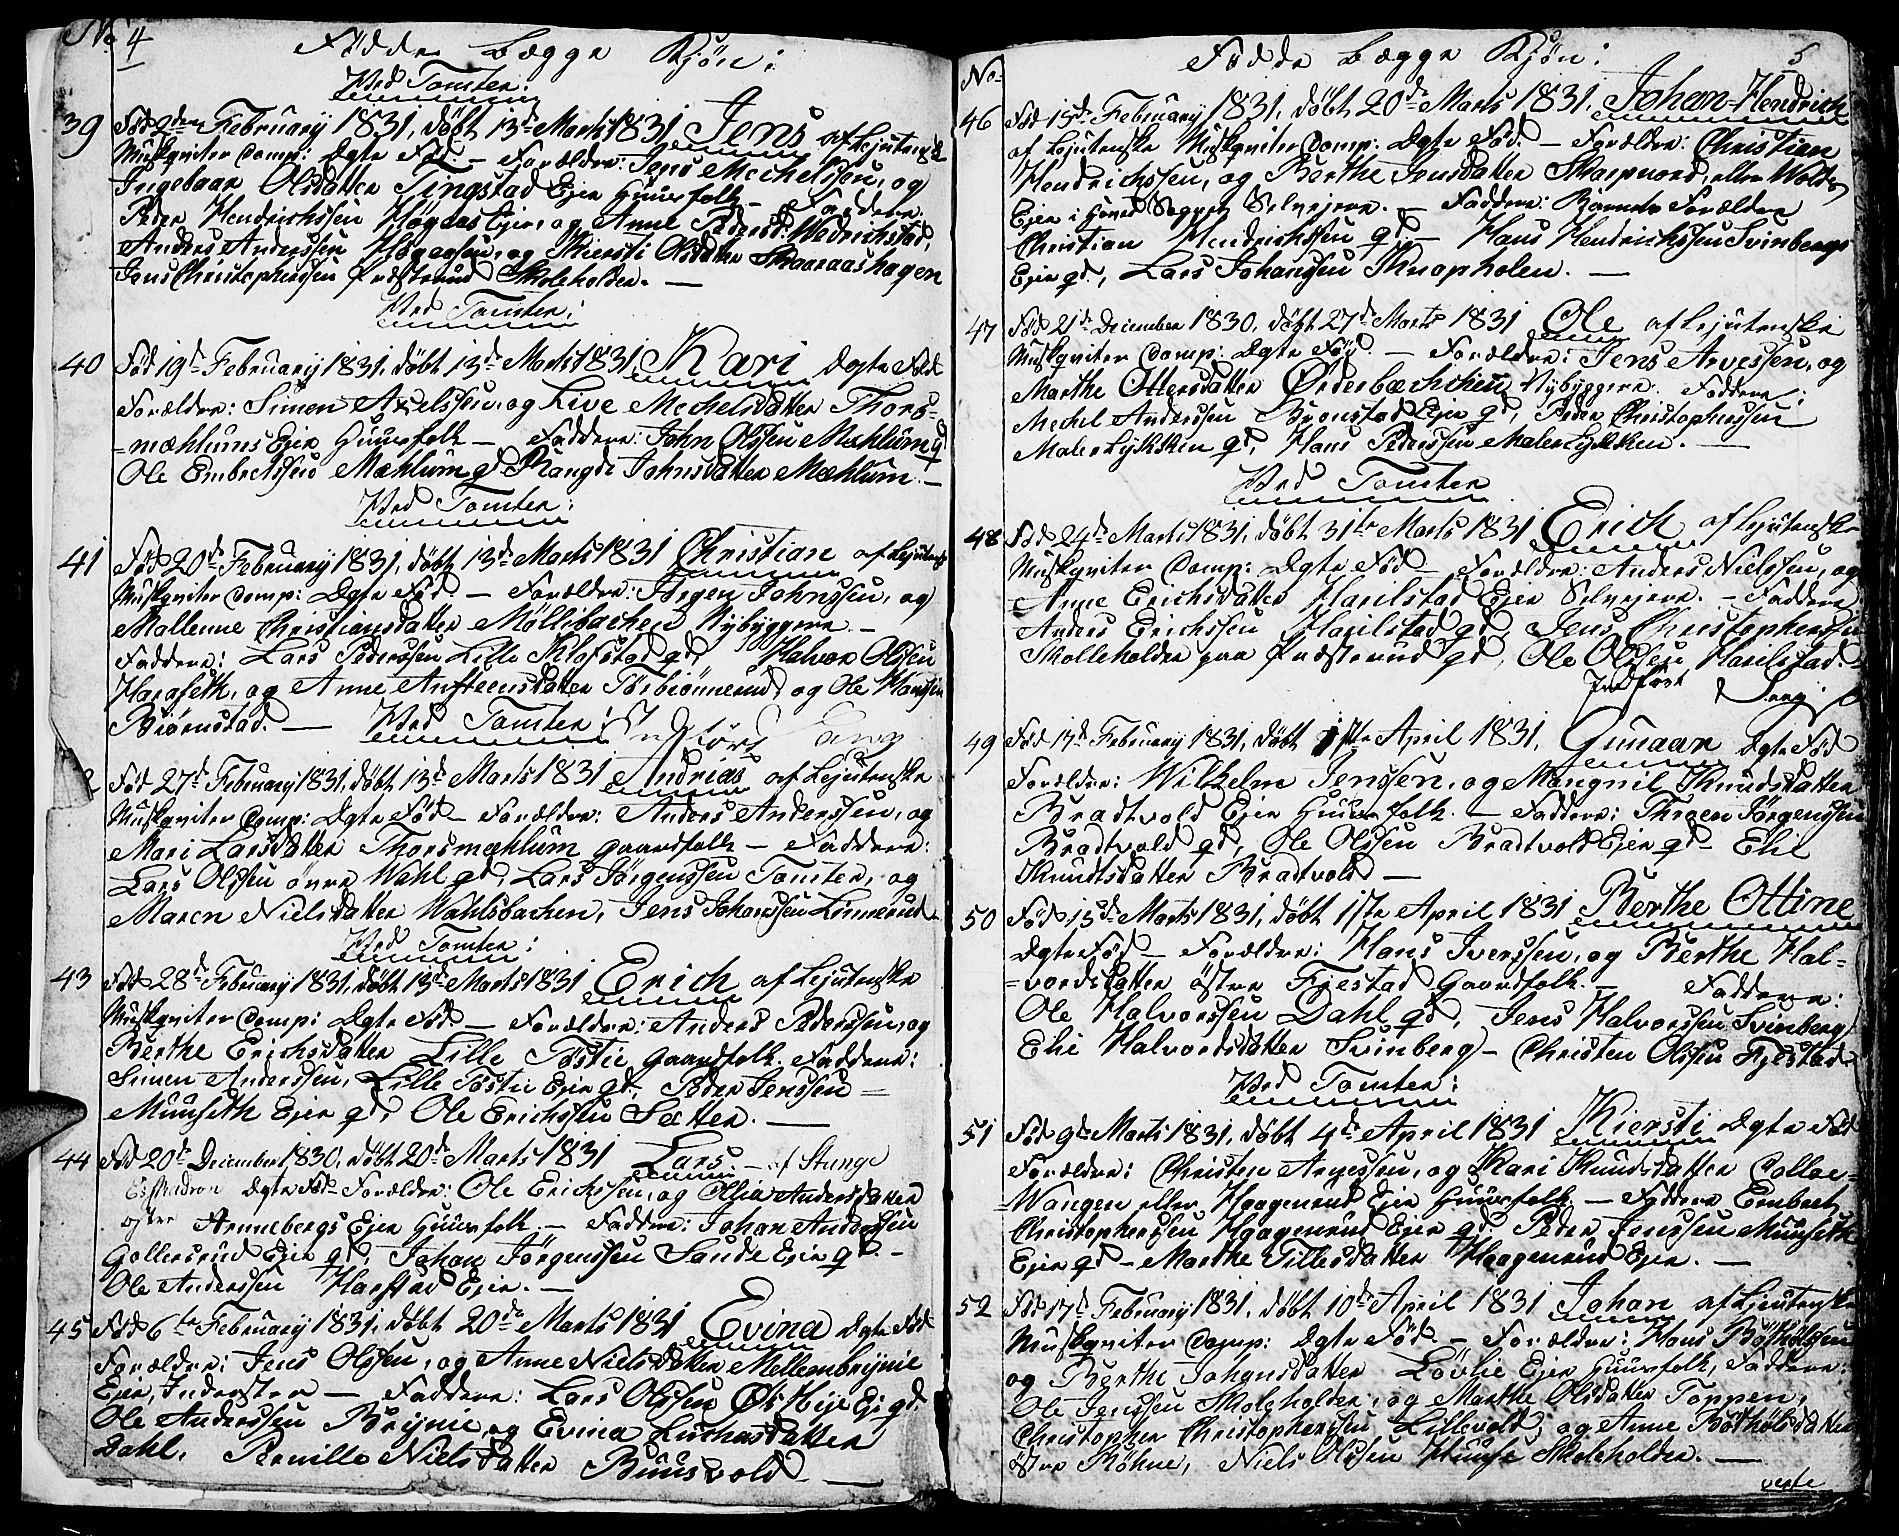 No 4 Födde bægge Kjön:
Ved Tomter:
39 Föd 2den February 1831, döbt 13de Marts 1831 Jens af Lejutenske
Muskqviter Comp: Ægte Föd. — Forældre: Jens Mechelssen, og
Ingebaar Olsdatter Tingstad Ejer Huusfolk — Faddere:
Peder Hendrichssen Högaas Ejer, og Anne Pedersd: Wedrichstad,
Anders Andersen Högaasen, og Kiersti Olsdatter Skaaraashagen
Jens Christophersen Præsterud Skoleholder. —
Ved Tomter:
40 Föd 19de February 1831, döbt 13de Marts 1831, Kari Ægte Föd
Forældre: Simen Axelssen, og Live Mechelsdatter Thors-
=mæhlums Ejer Huusfolk — Faddere: John Olssen Mæhlum gd
Ole Embretssen Mæhlum gd Rangde Johnsdatter Mæhlum —
Ved Tomter:
41 Föd 20de February 1831, döbt 13de Marts 1831 Christian af Lejutenske
Muskqviter Comp: Ægte Föd — Forældre: Jörgen Johnssen, og
Mallenne Christiansdatter Möllibachen Nybyggere. —
Faddere: Lars Pederssen Lille Klofstad gd, Halvor Olssen
Haraseth, og Anne Anfteensdatter Torbiönnerud, og Ole Hanssen
Biörnstad. — Ved Tomter: Indfört
2 Föd 27de February 1831, döbt 13de Marts 1831 Andrias af Lejutenske
Muskqviter Comp: Ægte Föd — Forældre: Anders Anderssen, og
Mari Larsdatter Thorsmæhlum Gaardfolk — Faddere:
Lars Olssen övre Wahl gd, Lars Jörgenssen Tomter, og
Maren Nielsdatter Wahlsbachen, Jens Johanssen Linnerud.
Ved Tomter:
43 Föd 28de February 1831, döbt 13de Marts 1831 Erich af Lejutenske
Muskqviter Comp: Ægte Föd. — Forældre: Anders Pederssen, og
Berthe Erichsdatter Lille Töstie Gaardfolk. Faddere:
Simen Anderssen, Lille Töstie Ejer gd, Peder Jenssen =
Muuseth Ejer gd, Ole Erichssen Sætter. —
44 Föd 20de December 1830, döbt 20de Marts 1831 Lars — af Stange
Esskadron Ægte Föd — Forældre: Ole Erichssen, og Ollia Andersdatter
östre Arnnebergs Ejer Huusfolk. — Faddere: Johan Anderssen
Gollersrud Ejer gd, Johan Jörgenssen Sande Ejer gd —
Ole Anderssen Harstad Ejer. —
45 Föd 6te February 1831, döbt 20de Marts 1831 Evina Ægte Föd
Forældre: Jens Olssen, og Anne Nielsdatter Mellembrynie
Ejer, Inderster — Faddere: Lars Olssen Ejer gd.
Ole Anderssen Brynie, og Evina Luthersdatter
Dahl, Pernille Nielsdatter Buusvold —
No. Födde bægge Kjön: 5
46 Föd 15de February 1831, döbt 20de Marts 1831, Johan=Hendrich
af Lejutenske Muskqviter Comp: Ægte Föd. — Forældre: Christian
Hendrichssen, og Berthe Jensdatter Skarpnord, eller Wolden
Ejer i Hoved Sognet Selvejere. — Faddere: Barnets Forældre
Christian Hendrichssen gd — Hans Hendrichssen Svinbergs
Ejer gd, Lars Johanssen Knapholen. —
47 Föd 21de December 1830, döbt 27de Marts 1831 Ole af Lejutenske
Muskqviter Comp: Ægte Föd. — Forældre: Jens Arvessen, og
Marthe Ottersdatter Örderbæchchen Nybyggere. Faddere:
Mechel Anderssen Bronstad Ejer gd, Peder Christopherssen
Malerlykken gd, Hans Pederssen Malerlykken. —
Ved Tomter
48 Föd 24de Marts 1831, döbt 31te Marts 1831 Erich af Lejutenske
Muskqviter Comp: Ægte Föd — Forældre: Anders Nielssen, og
Anne Erichsdatter Harilstad Ejer Selvejere. — Faddere
Anders Erichssen Harilstad gd, Jens Christopherssen
Skolleholder paa Præsterud gd, Ole Olssen Harilstad.
Indfört
49 Föd 17de February 1831, döbt 1ste April 1831, Gunaar Ægte Föd
Forældre: Wilhelm Jenssen, og Mangnil Knudsdatter
Bradtvold Ejer Huusfolk. — Faddere: Thrane Jörgenssen
Bradtvold gd, Ole Olssen Bradtvold Ejer gd — Eli
Knudtsdatter Bradtvold —
50 Föd 15de Marts 1831, döbt 1ste April 1831 Berthe Ottine
Ægte Föd — Forældre: Hans Iverssen, og Berthe Hal=
=vordsdatter östre Fjestad Gaardfolk. — Faddere:
Ole Halvorssen Dahl gd, Jens Halvorssen Svinberg
Eli Halvordsdatter Svinberg — Christen Olssen Fjestad
Ved Tomter:
51 Föd 9de Marts 1831, döbt 4de April 1831 Kiersti Ægte Föd
Forældre: Christen Arvessen, og Kari Knudsdatter Collae=
=Wangen eller Haagenrud Ejer Huusfolk — Faddere Embret
Christopherssen Haagenrud Ejer gd Peder Jenssen Muuseth
Ejer gd — Marthe Tillesdatter Haagenrud Ejer. —
52 Föd 17de February 1831, döbt 10de April 1831 Johan af Lejutenske
Muskqviter Comp: Ægte Föd. — Forældre: Hans Böthölssen
og Berthe Johansdatter Lövlie Ejer Huusfolk, Faddere:
Ole Jenssen Skoleholder, og Marthe Olsdatter Toppen,
Christopher Christopherssen Lillevold, og Anne Böthölsdatter
östre Böhne, Niels Olssen Huuse Skoleholder. —